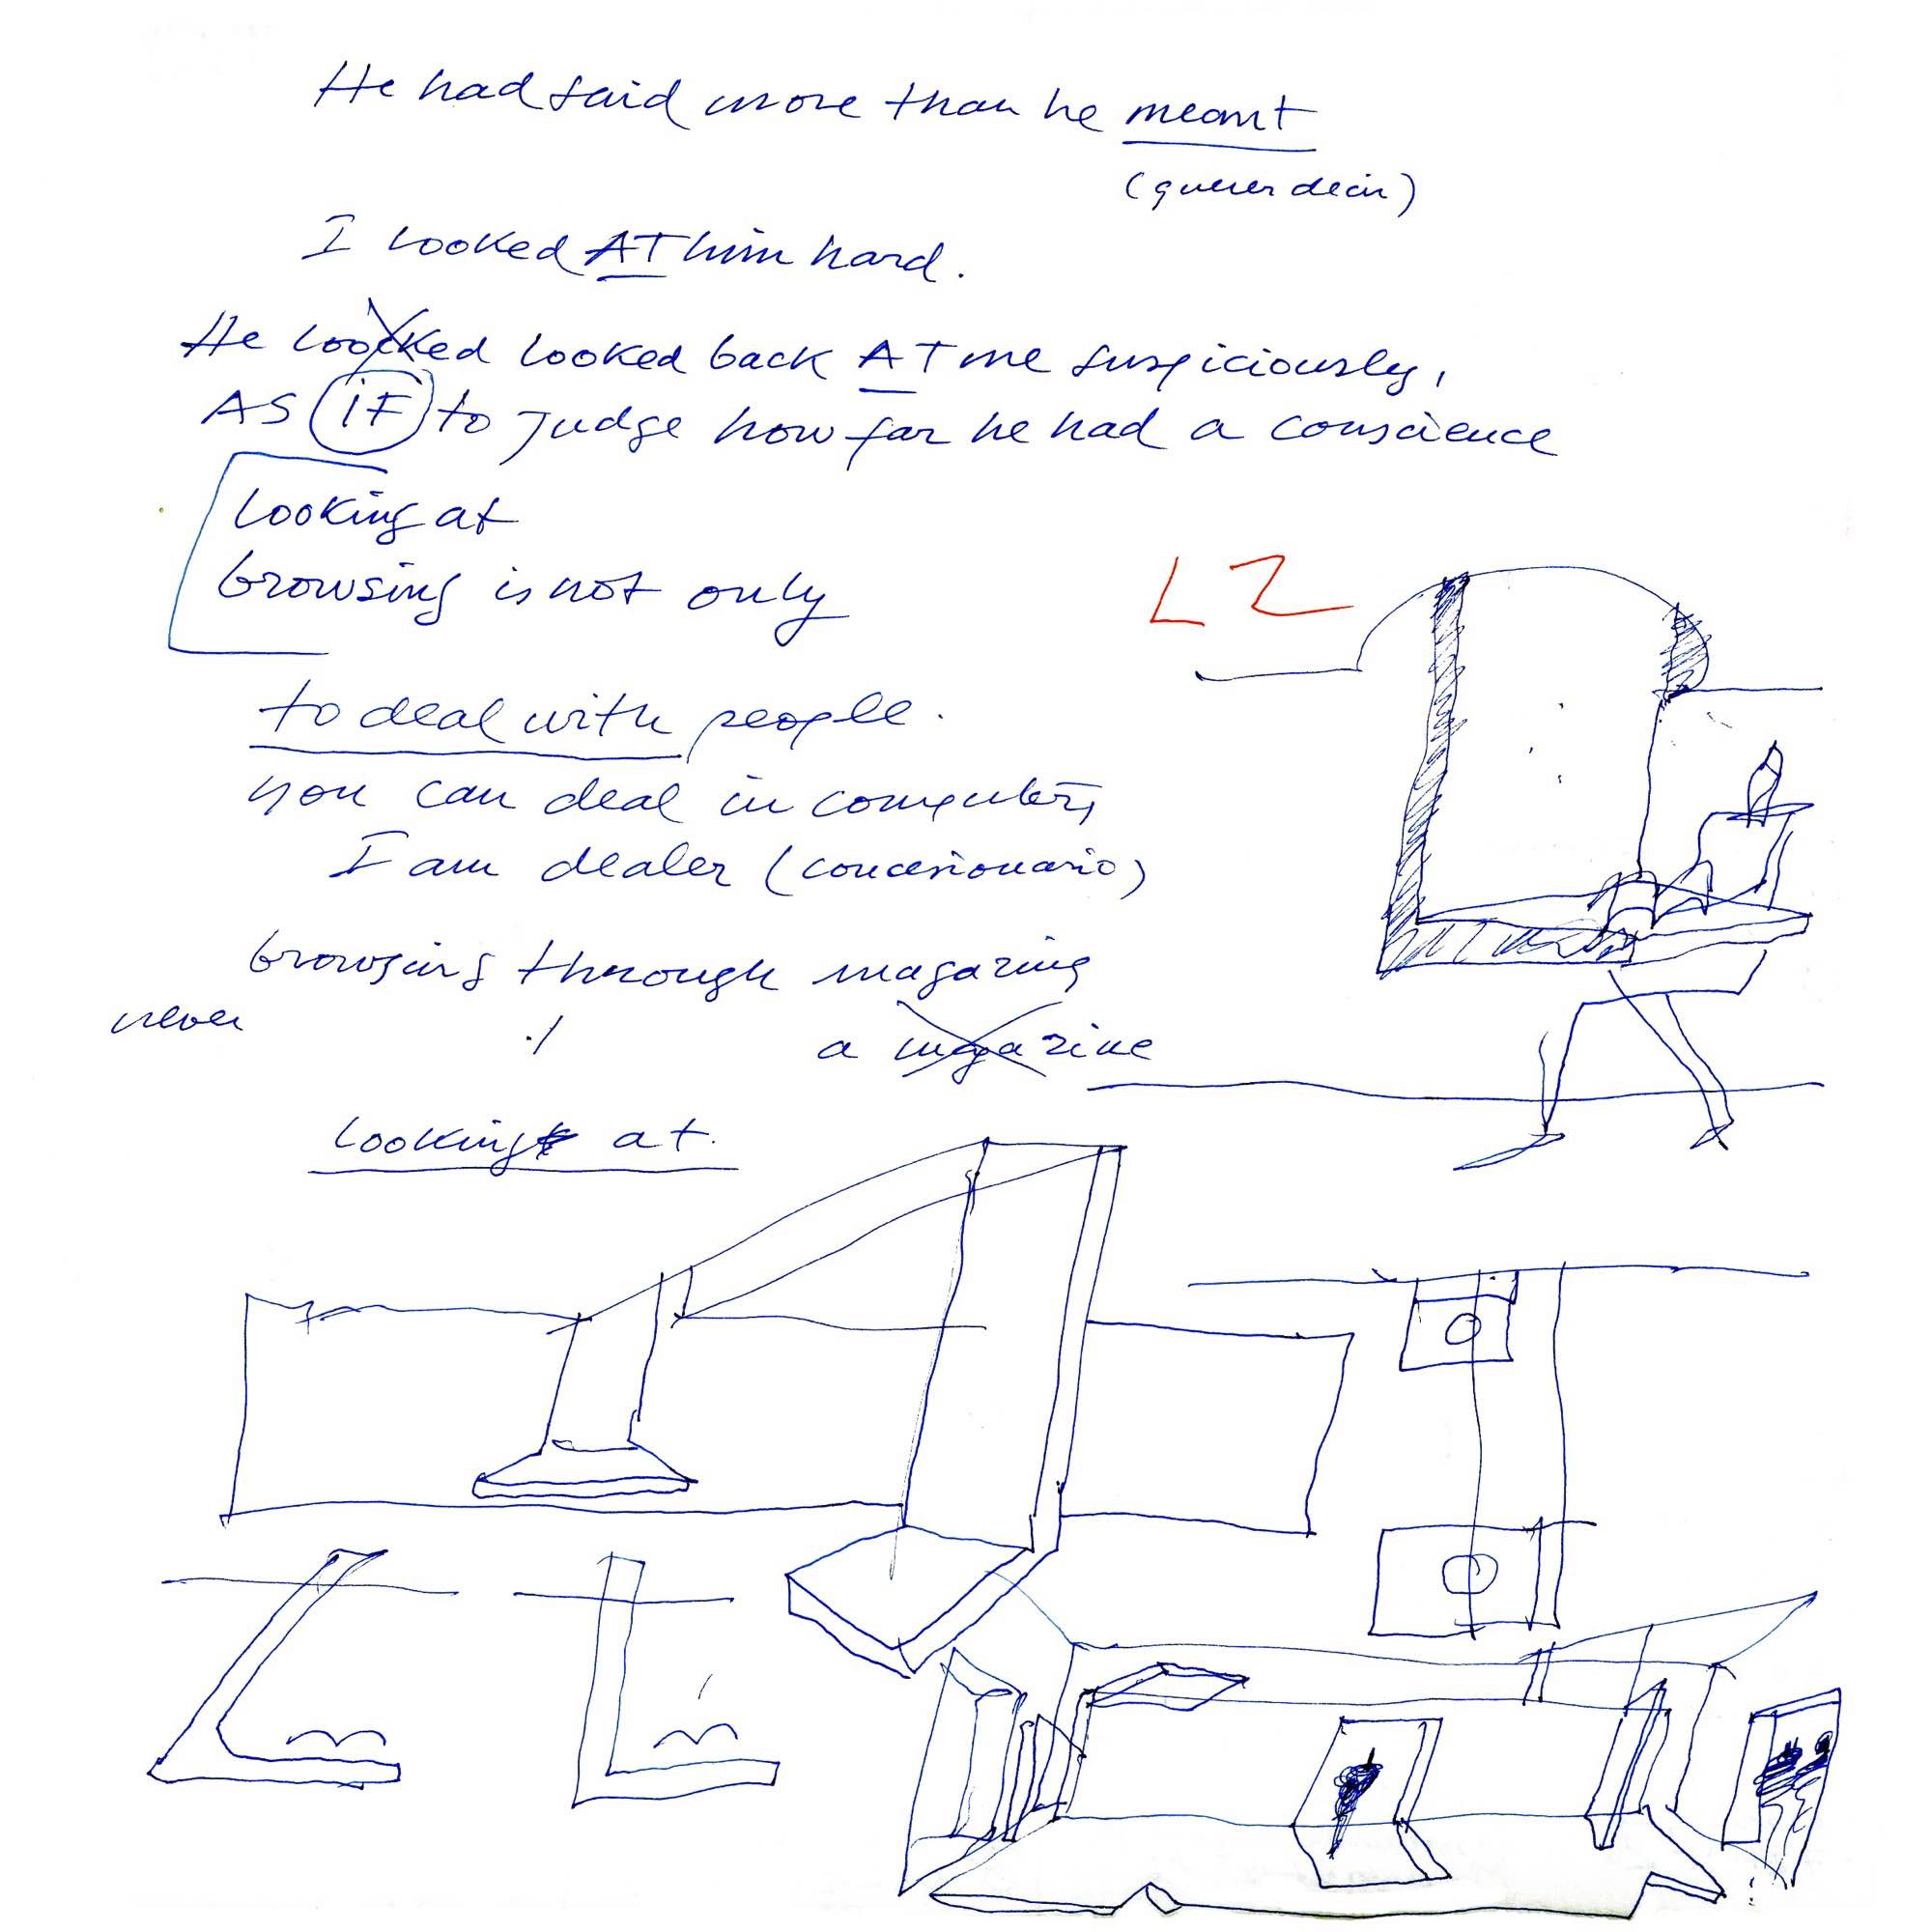 He had said more than he meant
(querer decir)
I looked AT him hard.
He looked looked back AT me suspiciously,
AS iF to judge how far he had a conscience
looking at
browsing is not only
LZ
to deal with people.
you can deal in computers
I am dealer (concesionario)
browsing through magazine
never
a magazine
looking at.